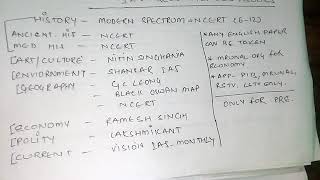 HISTORY - MODERN SPECTRUM + NCERT (6-12)
ANCIENT HIS - NCERT
MED HIS - NCERT
[ART/CULTURE - NITIN SINGHANIA
[ENVIORNMENT - SHANKAR IAS
[GEOGRAPHY - GC LEONG
BLACK OWAN MAP
- NCERT
[ECONOMY - RAMESH SINGH
[POLITY - LAKSHMIKANT
[CURRENT - VISION IAS-MONTHLY
*ANY ENGLISH PAPER
CAN BE TAKEN
* MRUNAL.ORG FOR
ECONOMY
* APP- PIB, MRUNAL,
RSTV, ONLY.
ONLY FOR PRE.